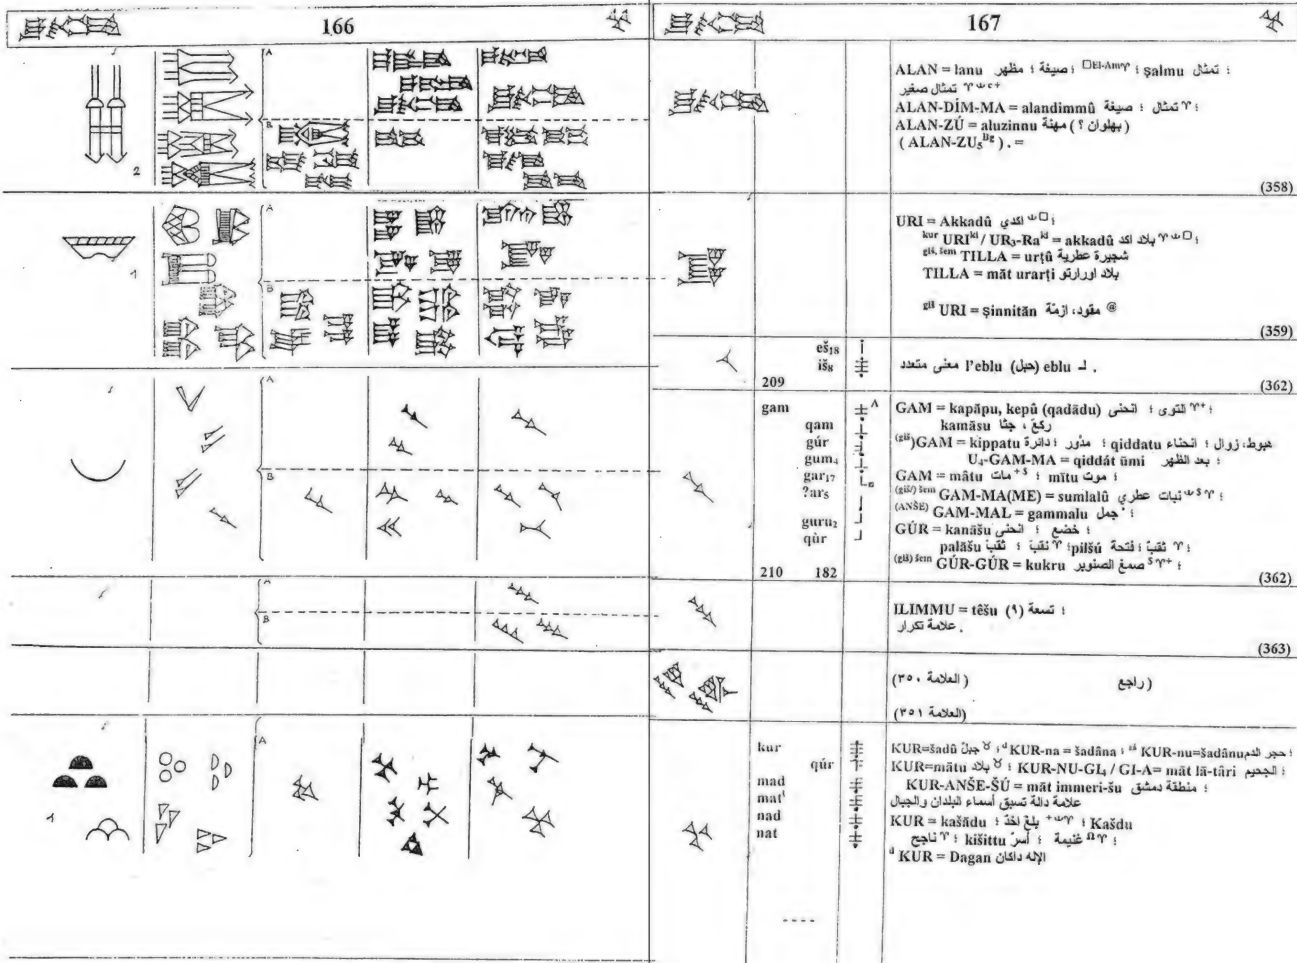 166
A
B
2
A
B
1
A
B
A
B
A
1
167
ALAN = lanu صيغة ؛ مظهر ؛ □El-Am♈ ؛ ṣalmu تمثال ؛
تمثال صغير
ALAN-DÍM-MA = alandimmû تمثال ؛ صيغة ♈ ؛
ALAN-ZÚ = aluzinnu مهنة ( بهلوان ؟ )
( ALAN-ZU₅ᴮᵍ ) . =
(358)
URI = Akkadû اكدي ؛
kur URIki / UR₃-Raki = akkadû بلاد اكد ؛
giš, šem TILLA = urṭû شجيرة عطرية
TILLA = māt urarṭi بلاد اورارتو
giš URI = ṣinnitān مقود، ازمّة @
(359)
eš₁₈
iš₈
209
معنى متعدد l'eblu (حبل) eblu لـ .
(362)
gam
qam
gúr
gum₄
gar₁₇
?ar₅
guru₂
qùr
210 182
A
GAM = kapāpu, kepû (qadādu) التوى ؛ انحنى ؛
kamāsu ركعَ ، جثا
(giš)GAM = kippatu مدّور ؛ دائرة ؛ qiddatu هبوط، زوال ؛ انحناء
U₄-GAM-MA = qiddát ūmi بعد الظهر ؛
GAM = mâtu مات ؛ mītu موت ؛
(giš/) šem GAM-MA(ME) = sumlalû نبات عطري ؛
(ANŠE) GAM-MAL = gammalu جمل ؛
GÚR = kanāšu خضع ؛ انحنى ؛
palāšu نقبَ ؛ ثقبَ ؛ pilšú ثقبٌ ؛ فتحة ؛
(giš) šem GÚR-GÚR = kukru صمغ الصنوبر ؛
(362)
ILIMMU = têšu (٩) تسعة ؛
علامة تكرار .
(363)
( راجع ( العلامة ٣٥٠ )
(العلامة ٣٥١)
kur
qúr
mad
matᵗ
nad
nat
KUR=šadû جبلٌ ؛ d KUR-na = šadâna ؛ KUR-nu=šadânu حجر الدم ؛
KUR=mātu بلاد ؛ KUR-NU-GI₄ / GI-A= māt lā-târi الجحيم ؛
KUR-ANŠE-ŠÚ = māt immeri-šu منطقة دمشق ؛
علامة دالة تسبق أسماء البلدان والجبال
KUR = kašādu بلغَ اخذَ ؛ Kašdu
ناجح ؛ kišittu أسرٌ ؛ غنيمة ؛
d KUR = Dagan الإله داكان
----